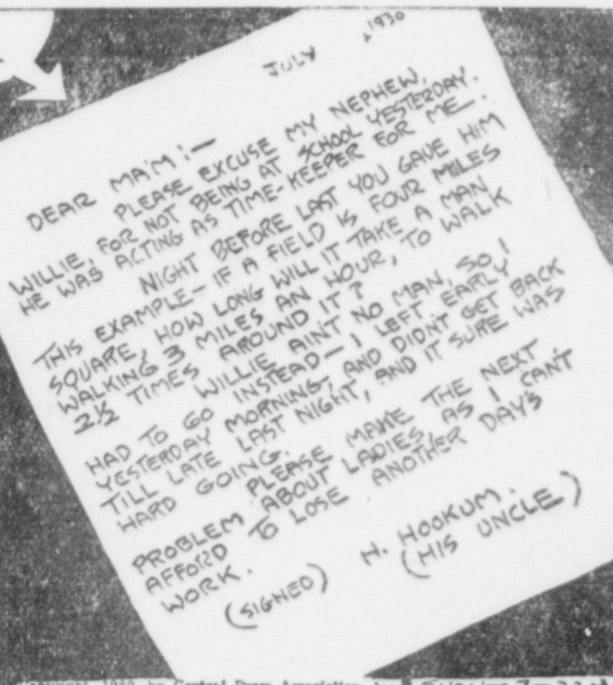 JULY , 1930
DEAR MA'M:—
PLEASE EXCUSE MY NEPHEW,
WILLIE, FOR NOT BEING AT SCHOOL YESTERDAY.
HE WAS ACTING AS TIME-KEEPER FOR ME.
NIGHT BEFORE LAST YOU GAVE HIM
THIS EXAMPLE— IF A FIELD IS FOUR MILES
SQUARE, HOW LONG WILL IT TAKE A MAN
WALKING 3 MILES AN HOUR, TO WALK
2½ TIMES AROUND IT?
WILLIE AINT NO MAN, SO I
HAD TO GO INSTEAD— I LEFT EARLY
YESTERDAY MORNING, AND DIDN'T GET BACK
TILL LATE LAST NIGHT, AND IT SURE WAS
HARD GOING.
PLEASE MAKE THE NEXT
PROBLEM ABOUT LADIES, AS I CAN'T
AFFORD TO LOSE ANOTHER DAY'S
WORK.
(SIGNED) H. HOOKUM.
(HIS UNCLE)
1930, by Central Press Association